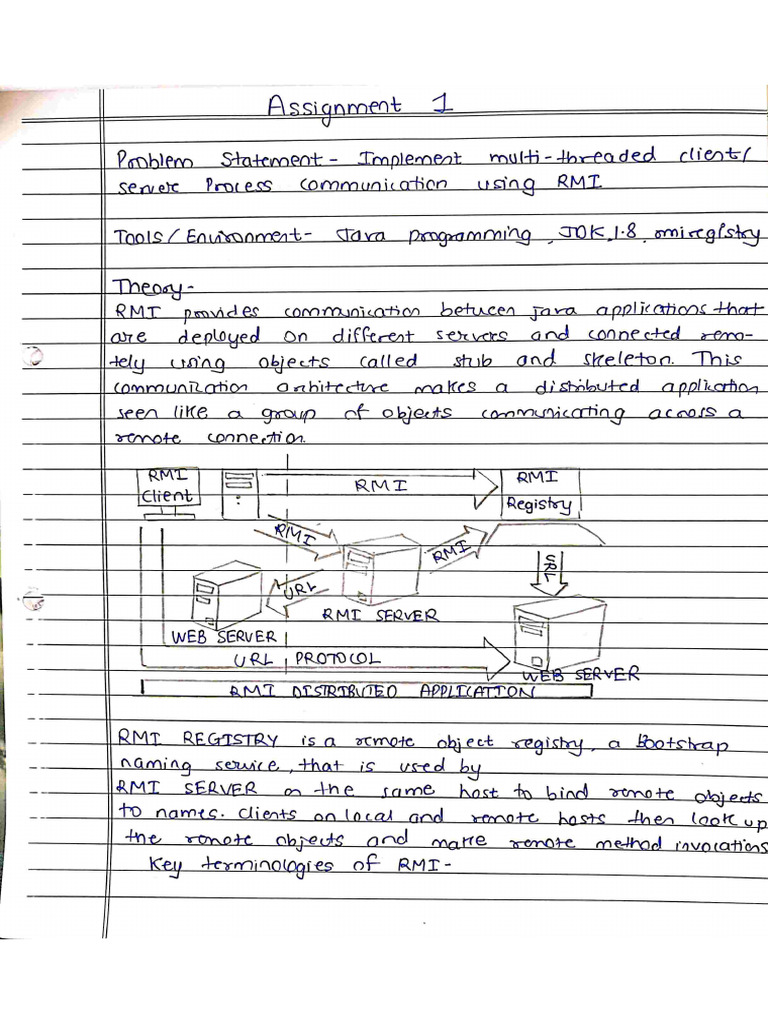 Assignment 1
Problem Statement - Implement multi-threaded client/
server Process communication using RMI
Tools/Environment- Java programming, JDK 1.8, rmiregistry
Theory-
RMI provides communication between java applications that
are deployed on different servers and connected remo-
tely using objects called stub and skeleton. This
communication architecture makes a distributed application
seen like a group of objects communicating across a
remote connection.
RMI
Client
RMI
RMI
Registry
RMI
RMI
URL
URL
RMI SERVER
WEB SERVER
URL PROTOCOL
WEB SERVER
RMI DISTRIBUTED APPLICATION
RMI REGISTRY is a remote object registry, a Bootstrap
naming service, that is used by
RMI SERVER on the same host to bind remote objects
to names. Clients on local and remote hosts then look up
the remote objects and make remote method invocations
Key terminologies of RMI-